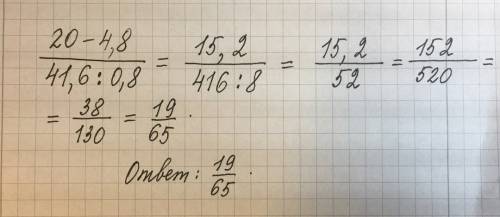 (20 − 4,8)/(41,6 : 0,8) = 15,2/(416 : 8) = 15,2/52 = 152/520 =
= 38/130 = 19/65 .
Ответ: 19/65 .